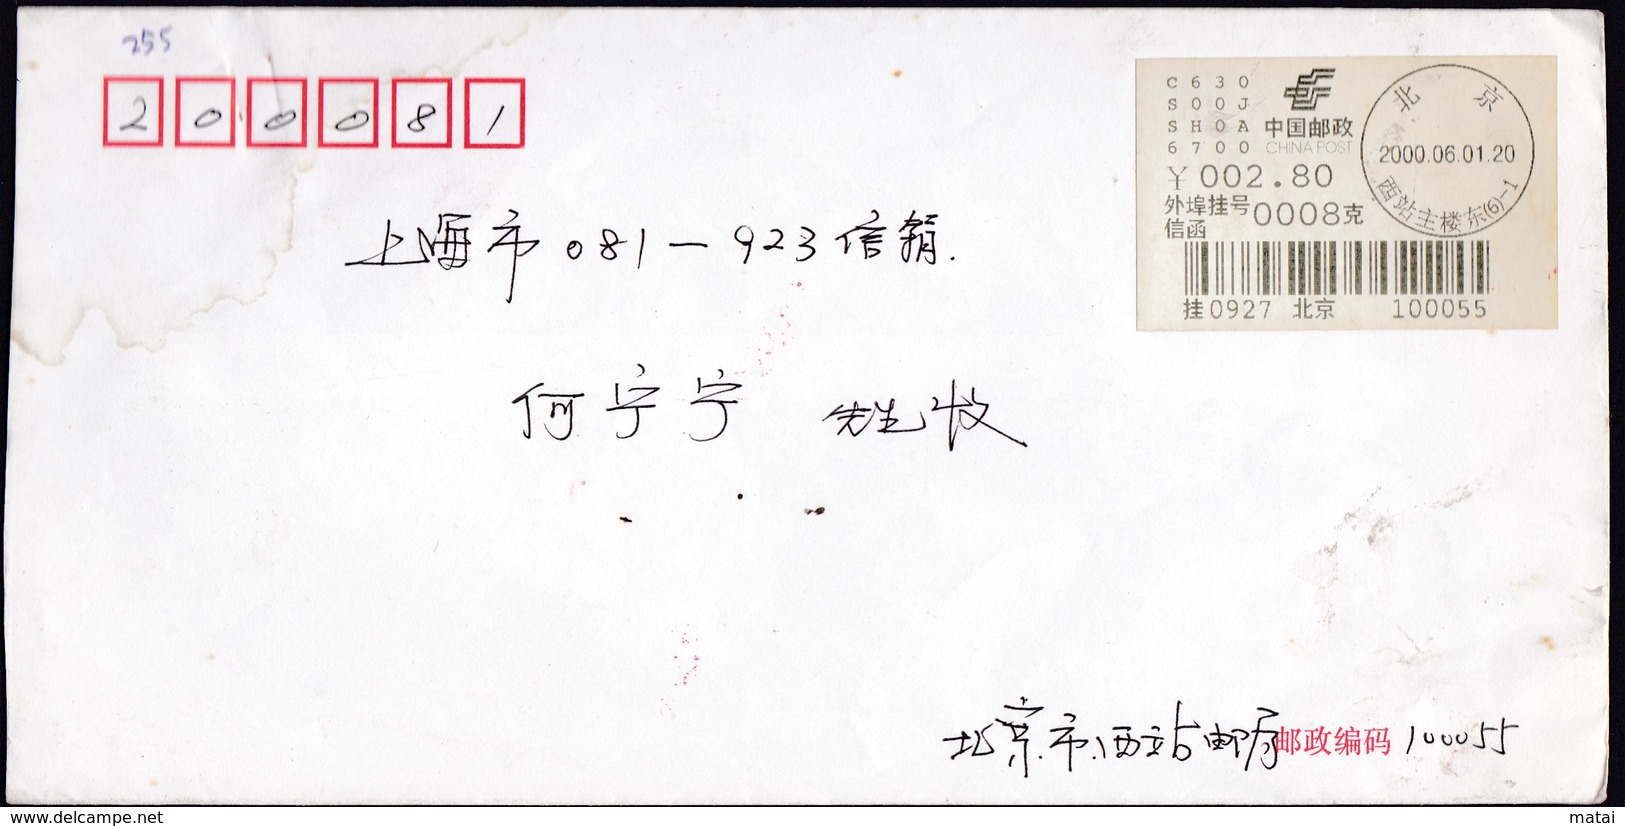 255
200081
C630
S00J
SH0A
6700
中国邮政
CHINA POST
北京
2000.06.01.20
西站主楼东(6)-1
￥002.80
外埠挂号
信函
0008克
挂0927 北京 100055
上海市081-923信箱.
何宁宁 先生收
北京市西站邮局邮政编码100055
www.delcampe.net
matai